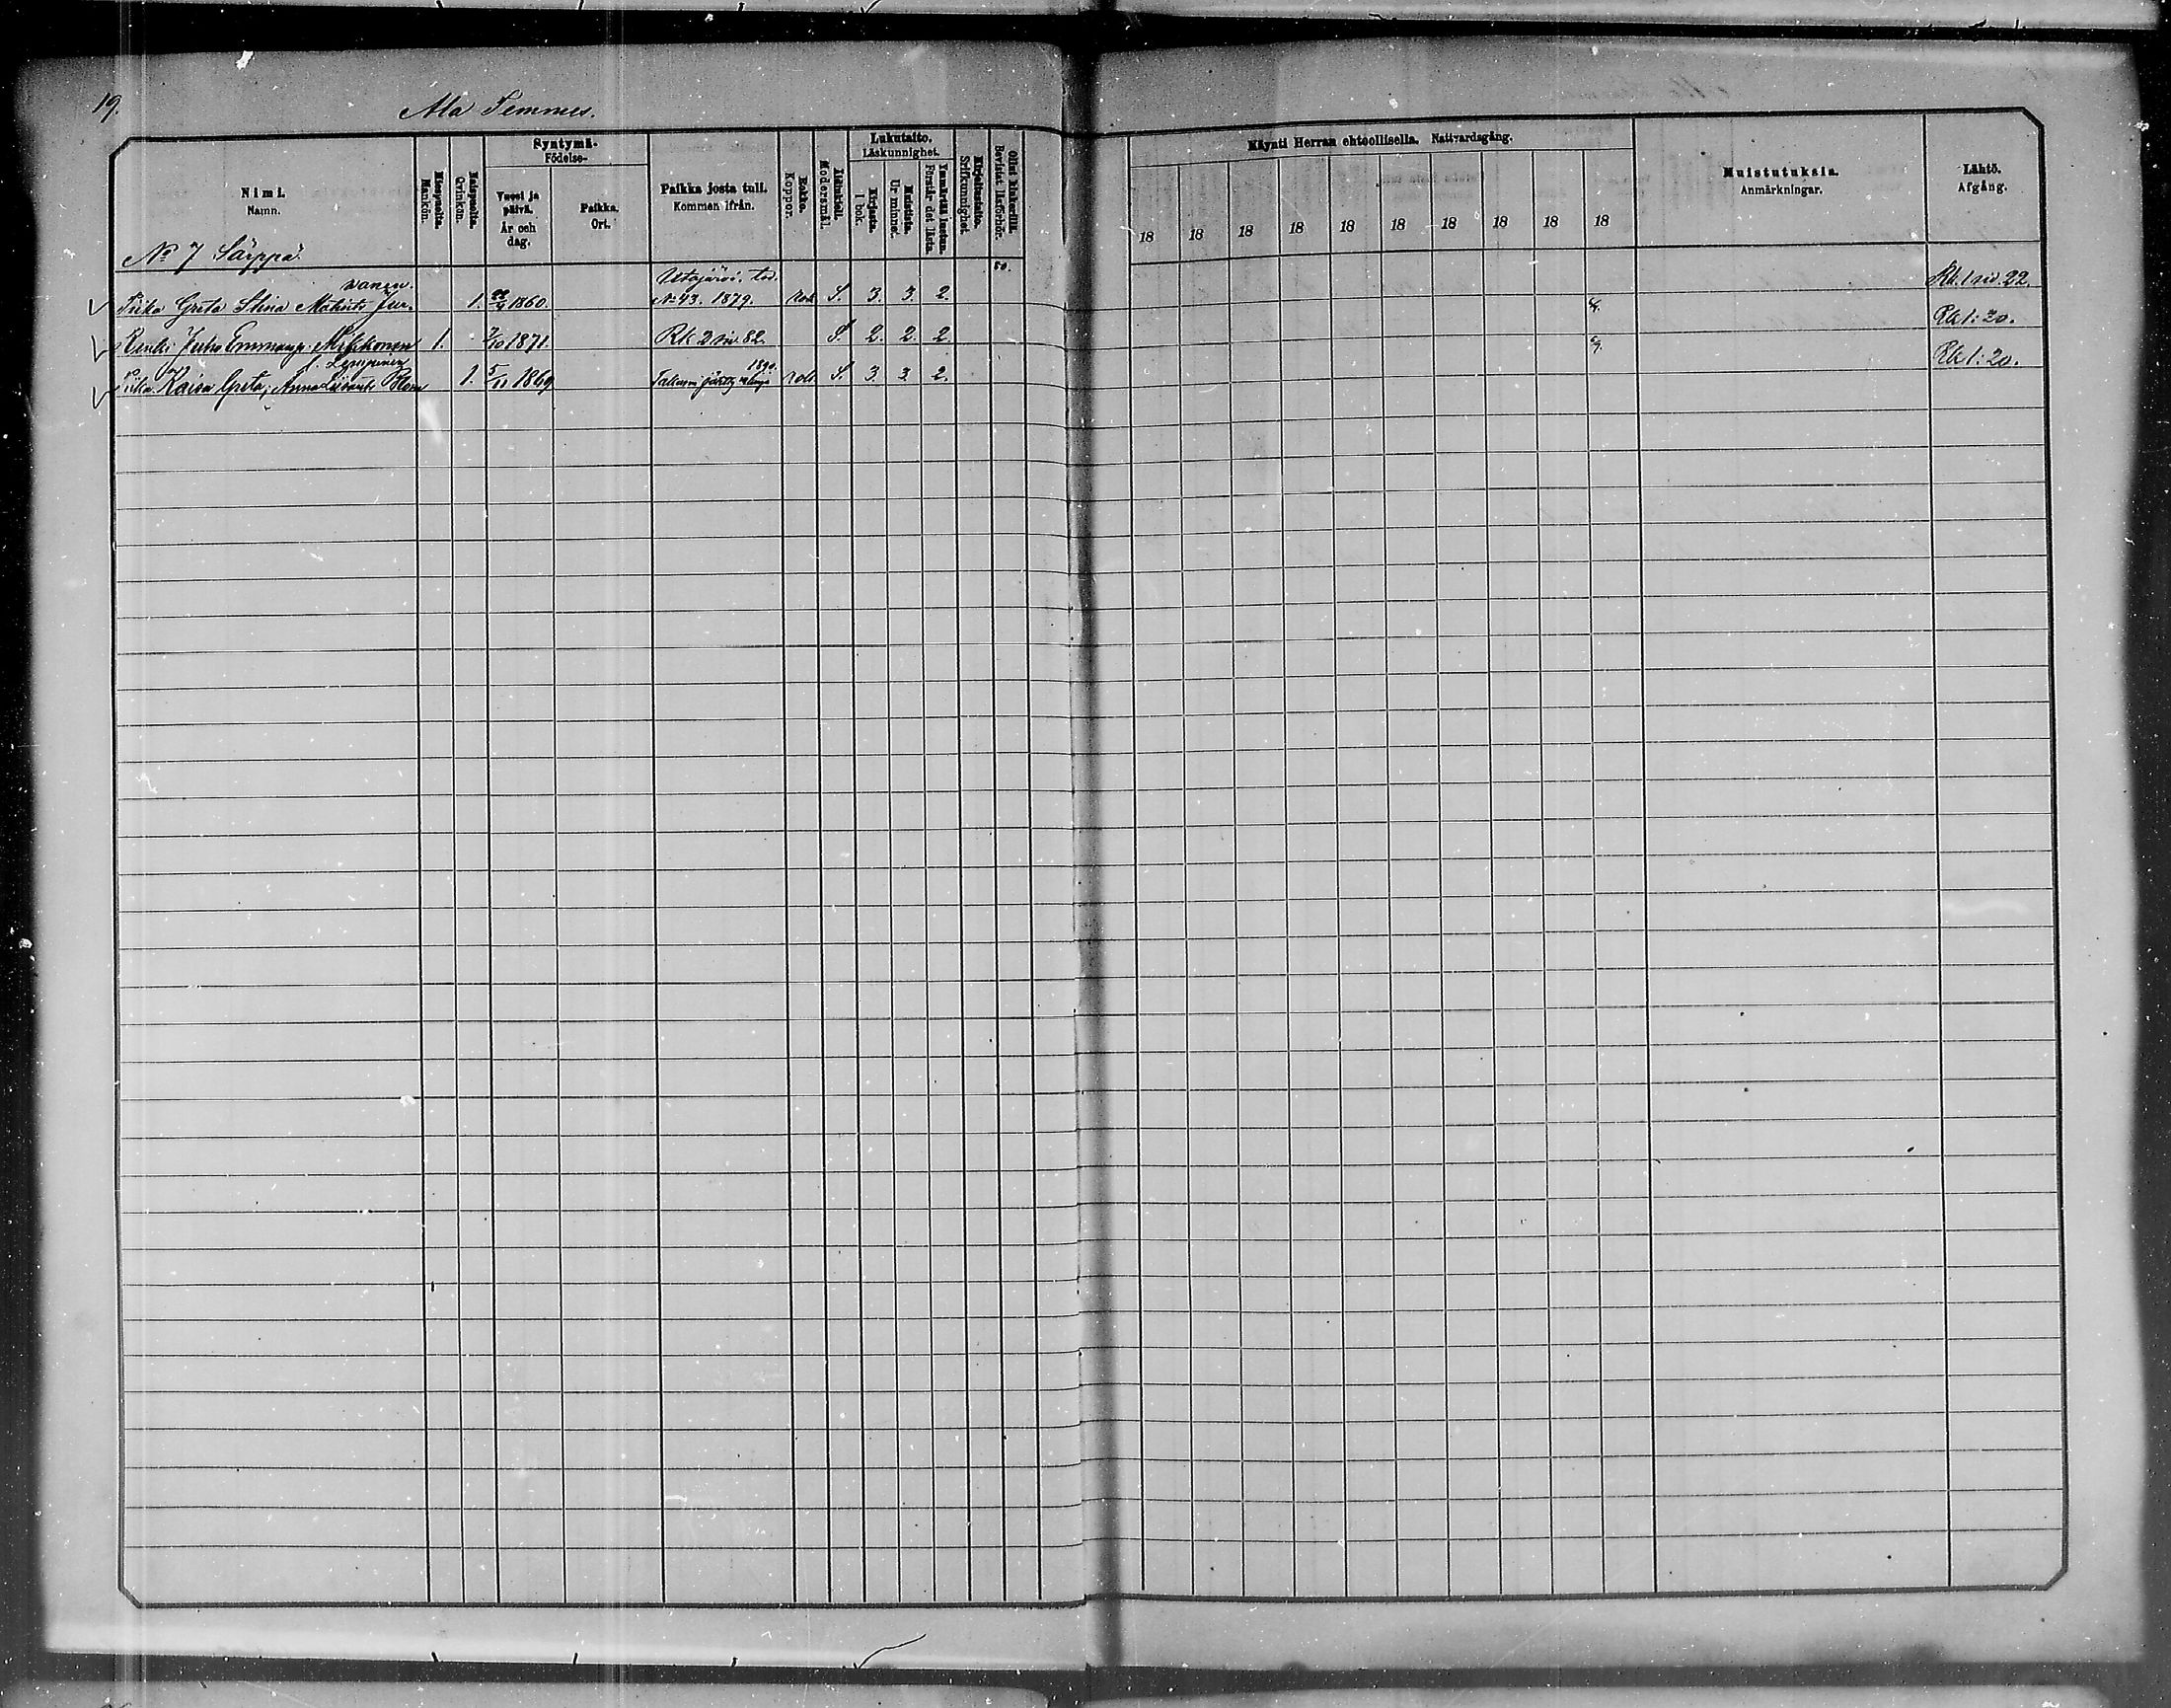 19.
Ala Temmes.
Nimi.
Namn.
Miespuolia.
Mankön.
Naispuolia.
Qvinkön.
Syntymä-
Födelse-
Vuosi ja
päivä.
År och
dag.
Paikka.
Ort.
Paikka josta tuli.
Kommen ifrån.
Rokko.
Koppor.
Äidinkieli.
Modersmål.
Lukutaito.
Läskunnighet.
Kirjasta.
I bok.
Muistista.
Ur minnet.
Ymmärtää luetun.
Förstår det lästa.
Kirjoitustaito.
Skrifkunnighet.
Ollut kinkerillä.
Bevistat läsförhör.
Käynti Herran ehtoollisella. Nattvardsgång.
18 18 18 18 18 18 18 18 18 18
Muistutuksia.
Anmärkningar.
Lähtö.
Afgång.
No 7 Särppä
80.
vanen.
Utajärvi. tod.
Piika Greta Stina Matint. Jur- 1. 1860. No 43. 1879. rok S. 3. 3. 2. Rk. 1 siv. 22.
Renki Juho Emmanp. Mikkonen 1. 7/10 1871. Rk 2 siv. 82. S. 2. 2. 2. Rk 1: 20.
1890.
Piika Kaisa Greta, Anna 1. 5/11 1869 rok S. 3. 3. 2. Rk 1: 20.